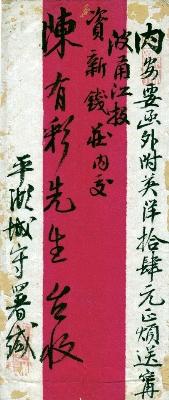 内安要函外附英洋拾肆元正煩送甯
波甬江投
資新錢莊內交
陳有彩先生台收
平湖城守署緘